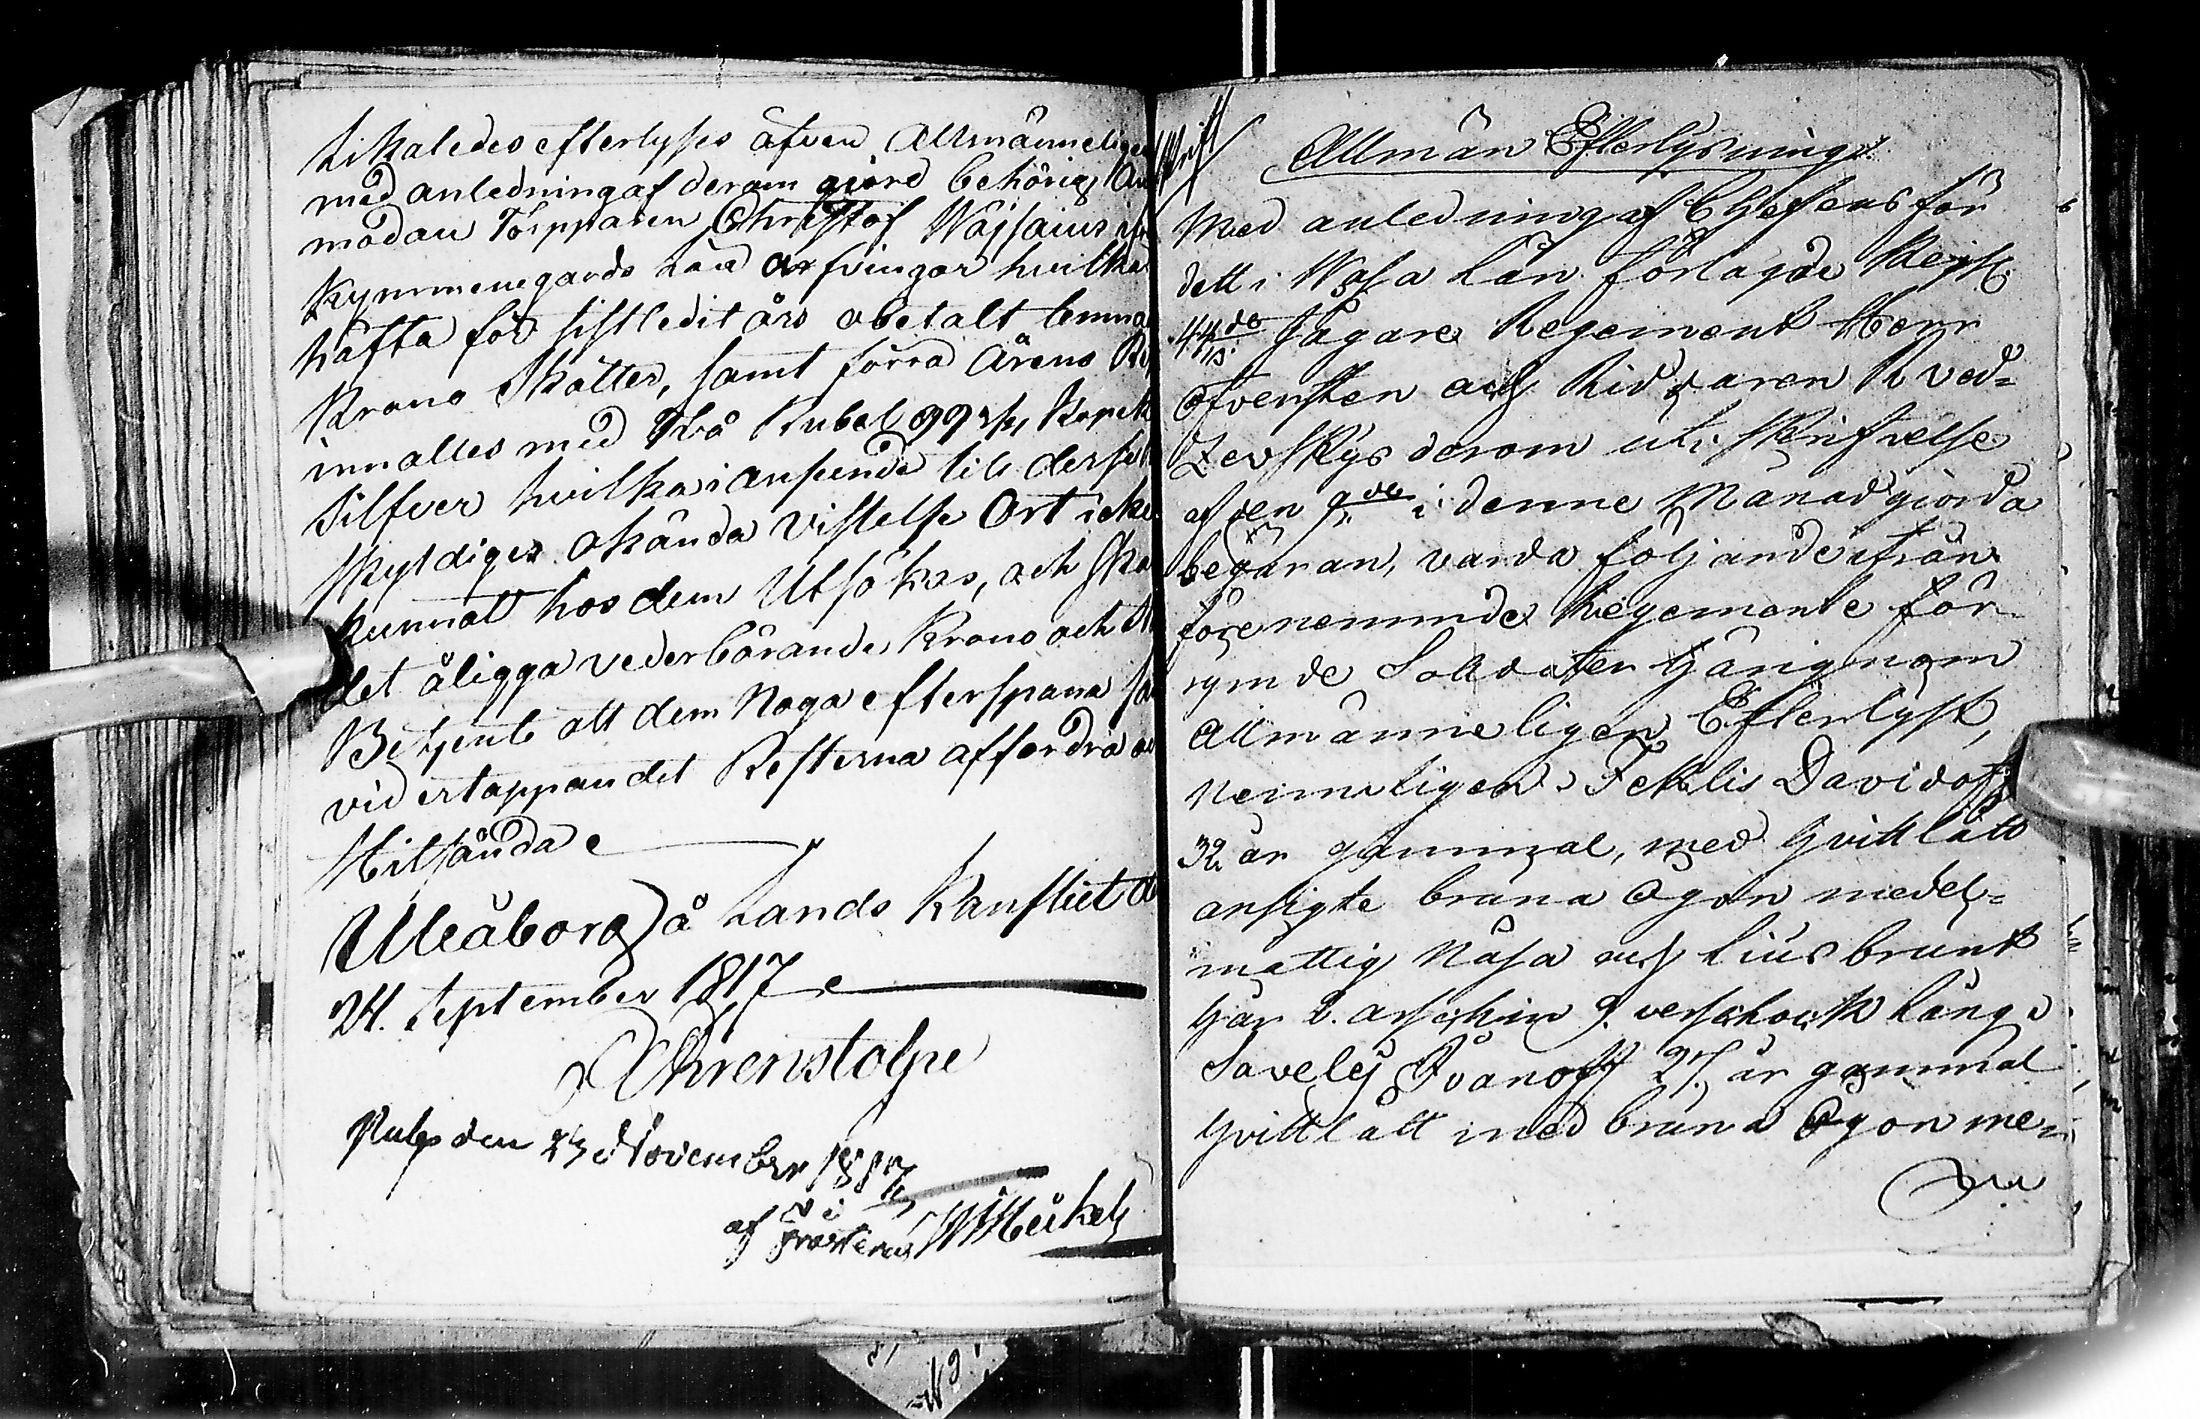 Likaledes efterlyses äfven Allmänneligen
med anledning af derom gjord behörig An
modan Torpparen Christof Wäisäius ifrån
Kymmenegårds Län arfvingar hvilka
häfta för sistledit års obetalt
Krono Skatter, samt förra Årens
inalles med Två Rubel 99 3/4 Kopek
Silfver hvilka i anseende till derses
skyldiges okända Vistelse Ort icke
kunnat hos dem Utsökas, och ska
det åligga vederbörande Krono och
Betjente att dem Noga efterspana sa
vid ertappandet Resterna affordra o
Hitsända
Uleåborg å Lands Kansliet d
24. September 1817
Ehrenstolpe
Pubs den 23 November 1817
af
Afskrift
Allmän Efterlysning
Med anledning af Chefens för
dett i Wasa Län förlagde Rysk.
44de Jägare Regement Herr
Öfversten och Riddaren Rved=
Zevskys derom uti Skrifvelse
af den 9de i denne Månad gjorda
begäran, varda följande ifrån
förenemnde Regemente för
rymde Soldater härigenom
Allmänneligen Efterlyst,
Nemnligen: Feklis Davidoff
32 år gammal, med hvittlätt
ansigte bruna Ögon medel=
mättig Näsa och Liusbrunt
hår 2. arschin 9. verschock lång.
Savelÿ Ivanoff 27. år gammal
hvittlätt med bruna Ögon me=